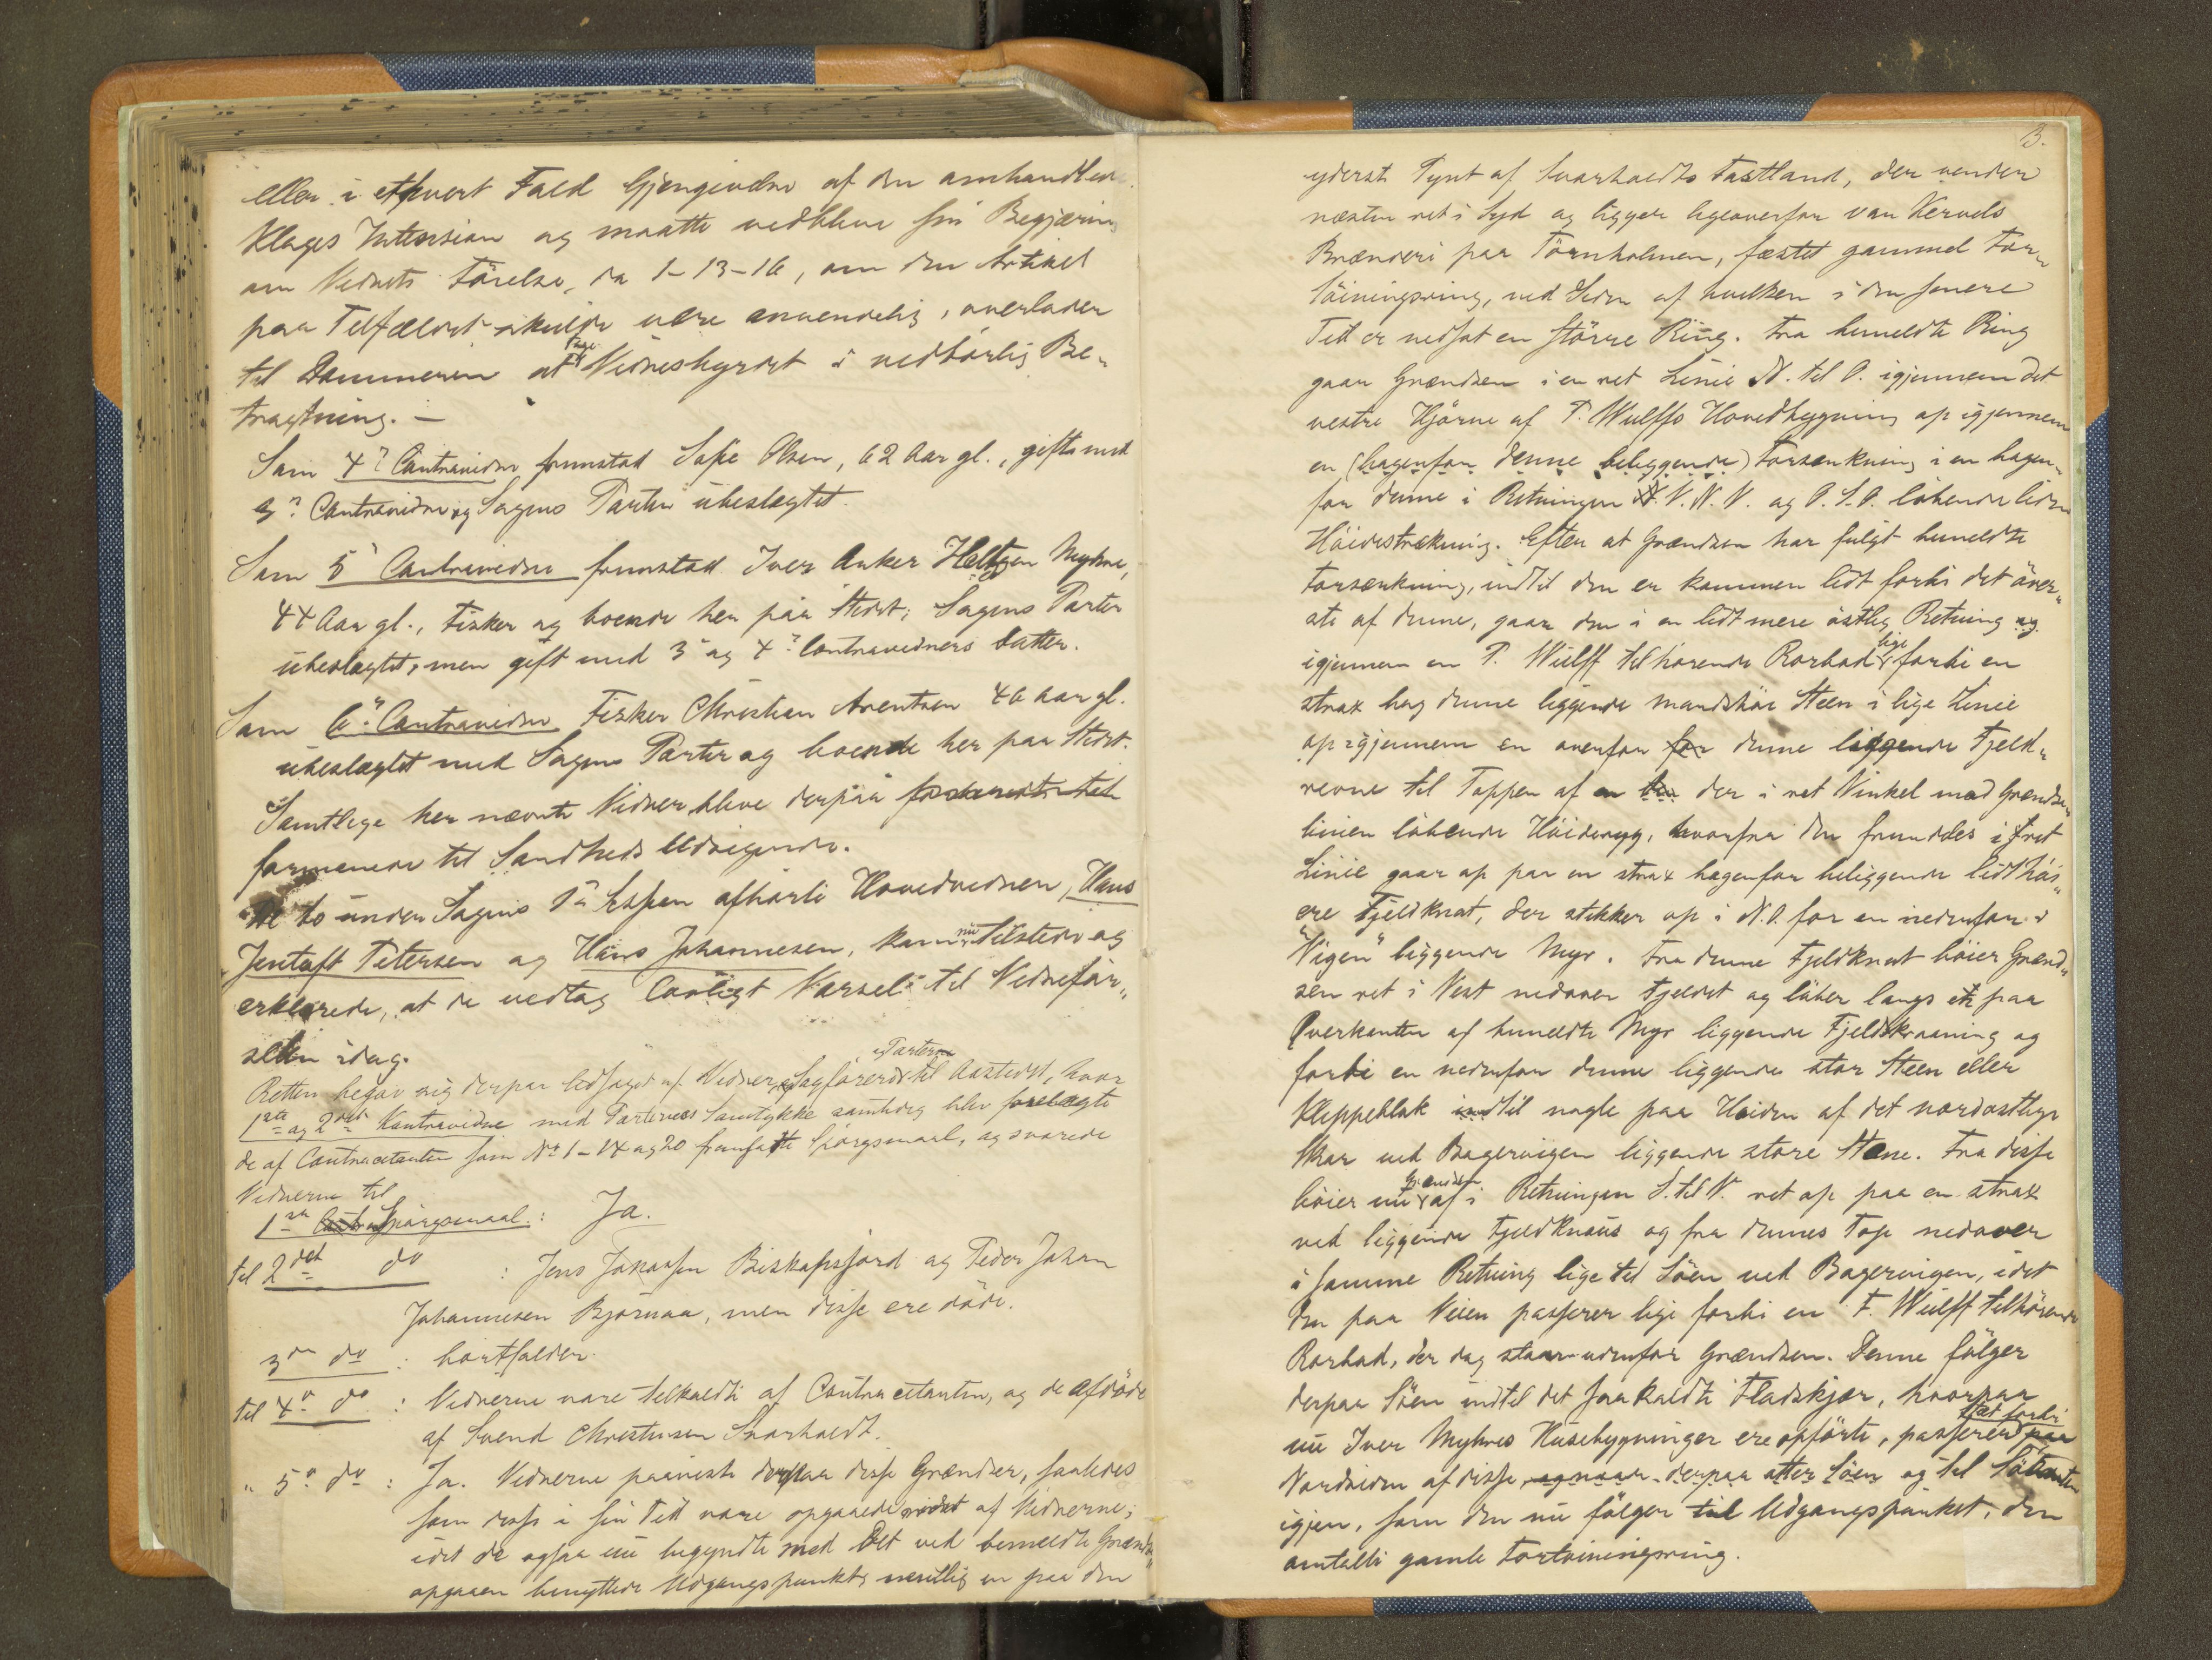 eller i ethvert Fald Gjengivelse af den omhandlede
Klages Intension og maatte vedblive sin Begjæring
om Vidnets Førelse, da 1-13-16, om den Artikel
paa Tilfældet skulde være anvendelig, overlader
til Dommeren at tage Vidnesbyrdet i vedbørlig Be-
tragtning. —
Som 4de Contravidne fremstod Sofie Olsen, 62 Aar gl., gift med
3de Contravidne og Sagens Parter ubeslægtet.
Som 5te Contravidne fremstod Iver Anker Heltzen Myhre,
44 Aar gl., Fisker og boende her paa Stedet; Sagens Parter
ubeslægtet, men gift med 3de og 4de Contravidners Datter.
Som 6te Contravidne Fisker Christian Arentsen 46 Aar gl.
ubeslægtet med Sagens Parter og boende her paa Stedet.
Samtlige her nævnte Vidner bleve derpaa
formanede til Sandheds Udsigende.
De to under Sagens 1ste Extra afhørte Hovedvidner, Hans
Jentoft Petersen og Hans Johannesen, kom nu tilstede og
erklærede, at de vedtog lovligt Varsel til Vidnefør-
selen idag.
Retten begav sig derpaa ledsaget af Vidner, Parterne og Sagførere til Aastedet, hvor
1ste og 2det Kontravidne med Parternes Samtykke samtidig blev forelagte
de af Contracitanten som No 1-14 og 20 fremsatte Spørgsmaal, og svarede
Vidnerne til
1ste Spørgsmaal: Ja.
til 2det do : Jens Jakobsen Biskopsfjord og Peder Johan
Johannesen Bjørnaa, men disse ere døde.
3die do : bortfalder.
til 4de do : Vidnerne vare tilkaldte af Contracitanten, og de afdøde
af Svend Christensen Svarholdt.
" 5te do : Ja. Vidnerne paaviste derpaa disse Grændser, saaledes
som disse i sin Tid vare opgaaede af Vidnerne;
idet de ogsaa nu begyndte med Det ved bemeldte Grændse-
opgaaen benyttede Udgangspunkt, nemlig en paa den
B.
yderste Pynt af Svarholdts Fastland, der vender
næsten ret i Syd og ligger ligeoverfor van Kervels
Brænderi paa Tørnholmen, fæstet gammel For-
tøiningsring, ved Siden af hvilken i den senere
Tid er nedsat en større Ring. Fra bemeldte Ring
gaar Grændsen i en ret Linie N. til O. igjennem det
vestre Hjørne af P. Wulffs Hovedbygning op igjennem
en (bagenfor denne beliggende) Forsænkning i en bagen-
for denne i Retningen N.V.N.V. og O.S.O. løbende liden
Høidestrækning. Efter at Grændsen har fulgt bemeldte
Forsænkning, indtil den er kommen lidt forbi det øver-
ste af denne, gaar den i en lidt mere østlig Retning og
igjennem en P. Wulff tilhørende Rorbod lige forbi en
strax bag denne liggende mandshøi Steen i lige Linie
op igjennem en ovenfor for denne liggende Fjeld-
revne til Toppen af en der i ret Vinkel med Grændse-
linien løbende Høideryg, hvorfra den fremdeles i ret
Linie gaar op paa en strax bagenfor beliggende lidt høi-
ere Fjeldknat, der stikker op i N.O. for en nedenfor i
"Vigen" liggende Myr. Fra denne Fjeldknat bøier Grænd-
sen ret i Vest nedover Fjeldet og løber langs et paa
Overkanten af bemeldte Myr liggende Fjeldskraaning og
forbi en nedenfor denne liggende stor Steen eller
Kleppeblok indtil nogle paa Høiden af det nordostlige
Skar ved Bagervigen liggende store Stene. Fra disse
bøier nu Grændsen af i Retningen S. til V. ret op paa en strax
ved liggende Fjeldknaus og fra dennes Top nedover
i samme Retning lige til Søen ved Bagervigen, idet
den paa Veien passerer lige forbi en P. Wulff tilhørende
Rorbod, der dog staar udenfor Grændsen. Denne følger
derpaa Søen indtil det saakaldte Fladskjær, hvorpaa
nu Iver Myhres Husebygninger ere opførte, passerer tæt forbi
Nordsiden af disse og naar derpaa atter Søen og til Søkanten
igjen, som den nu følger til Udgangspunktet, den
omtalte gamle Fortøiningsring.